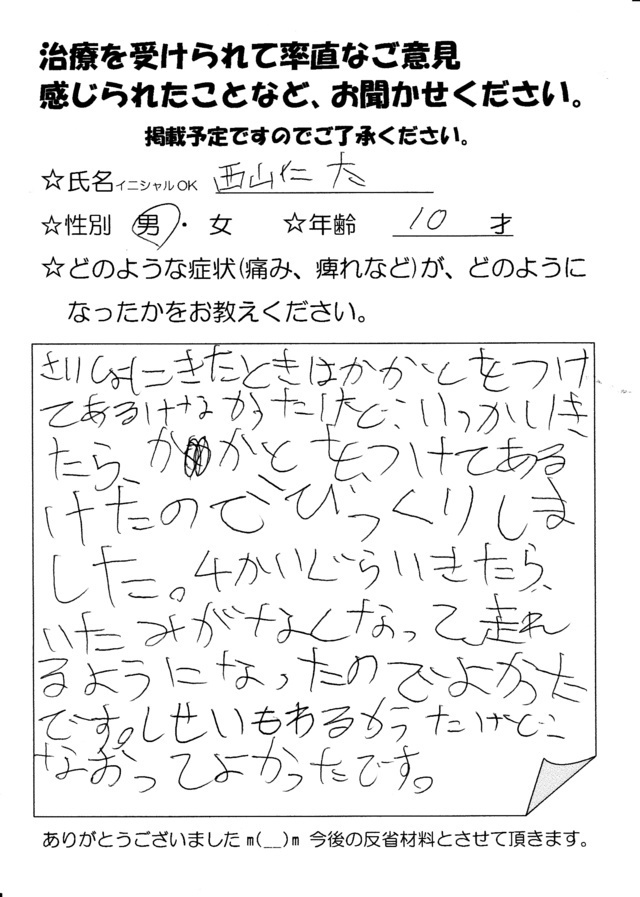 治療を受けられて率直なご意見
感じられたことなど、お聞かせください。
掲載予定ですのでご了承ください。
☆氏名イニシャルOK 西山仁太
☆性別 男・女 ☆年齢 10 才
☆どのような症状(痛み、痺れなど)が、どのように
なったかをお教えください。
さいしょにきたときはかかとをつけ
てあるけなかったけど、いっかいき
たら、かかとをつけてある
けたのでびっくりしま
した。4かいぐらいきたら、
いたみがなくなって、走れ
るようになったのでよかった
です。しせいもわるかったけど
なおってよかったです。
ありがとうございましたm(__)m 今後の反省材料とさせて頂きます。